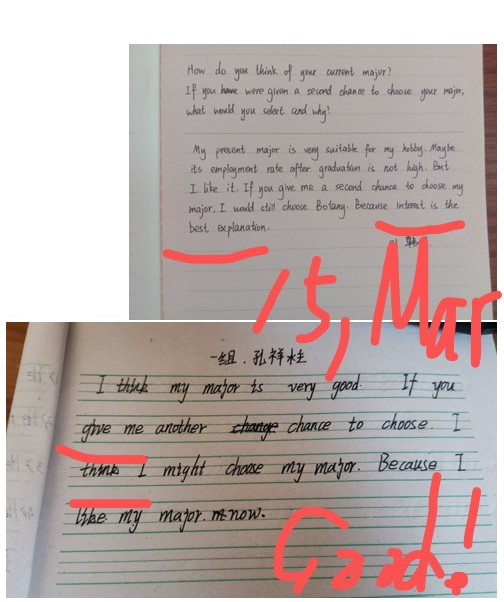 How do you think of your current major?
If you have were given a second chance to choose your major,
what would you select and why?
My present major is very suitable for my hobby. Maybe
its employment rate after graduation is not high. But
I like it. If you give me a second chance to choose my
major, I would still choose Botany. Because interest is the
best explanation.
韩
15, Mar
一组. 孔祥柱
I think my major is very good. If you
give me another change chance to choose. I
think I might choose my major. Because I
like my major. now.
Good!